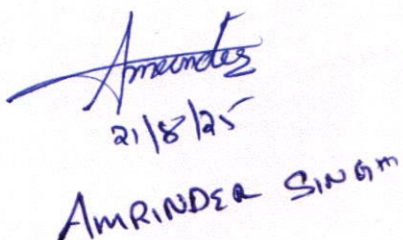 Amrinder
21/8/25
AMRINDER SINGH